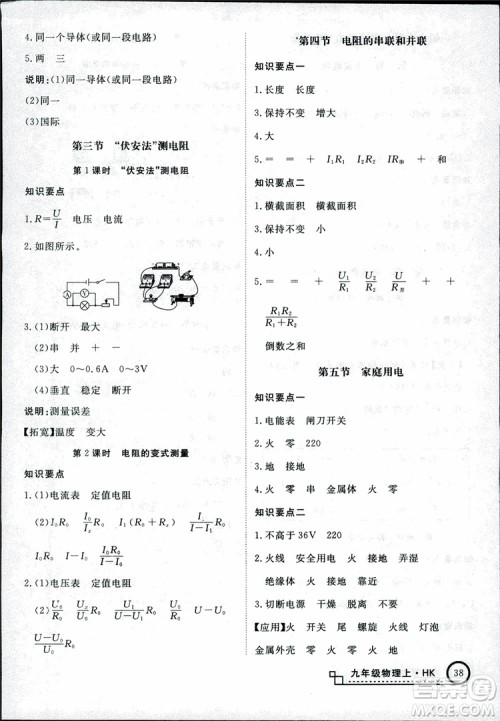 4. 同一个导体(或同一段电路)
5. 两 三
说明:(1)同一导体(或同一段电路)
(2)同一
(3)国际
第三节 “伏安法”测电阻
第1课时 “伏安法”测电阻
知识要点
1. R=U/I 电压 电流
2. 如图所示。
A V
3. (1)断开 最大
(2)串 并 + −
(3)大 0~0.6A 0~3V
(4)垂直 稳定 断开
说明:测量误差
【拓宽】温度 变大
第2课时 电阻的变式测量
知识要点
1. (1)电流表 定值电阻
(2)I₀R₀ I₀/Iₓ R₀ I₁(R₀+Rₓ) I₁/(I−I₁) R₀
I₀R₀ I−I₀ I₀/(I−I₀) R₀
2. (1)电压表 定值电阻
(2)U₀/R₀ Uₓ/U₀ R₀ U₀/R₀ U−U₀
(U−U₀)/U₀ R₀
*第四节 电阻的串联和并联
知识要点一
1. 长度 长度
3. 保持不变 增大 大
4. 大
5. = = + I₁R₁ I₂R₂ IR串 + 和
知识要点二
1. 横截面积 横截面积
3. 保持不变 小
4. 小
5. = = + U₁/R₁ U₂/R₂ U/R并 + +
R₁R₂/(R₁+R₂)
倒数之和
第五节 家庭用电
知识要点一
1. 电能表 闸刀开关
2. 火 零 220
3. 地 接地
4. 火 零 串 金属体 火 零
知识要点二
1. 不高于 36V 220
2. 火线 安全用电 火 接地 弄湿
接触 接地 靠近
3. 切断电源 干燥 绝缘
【应用】火 开关 尾 螺旋 火线 灯泡
金属外壳 零 火 火 火 大地
九年级物理上·HK
38